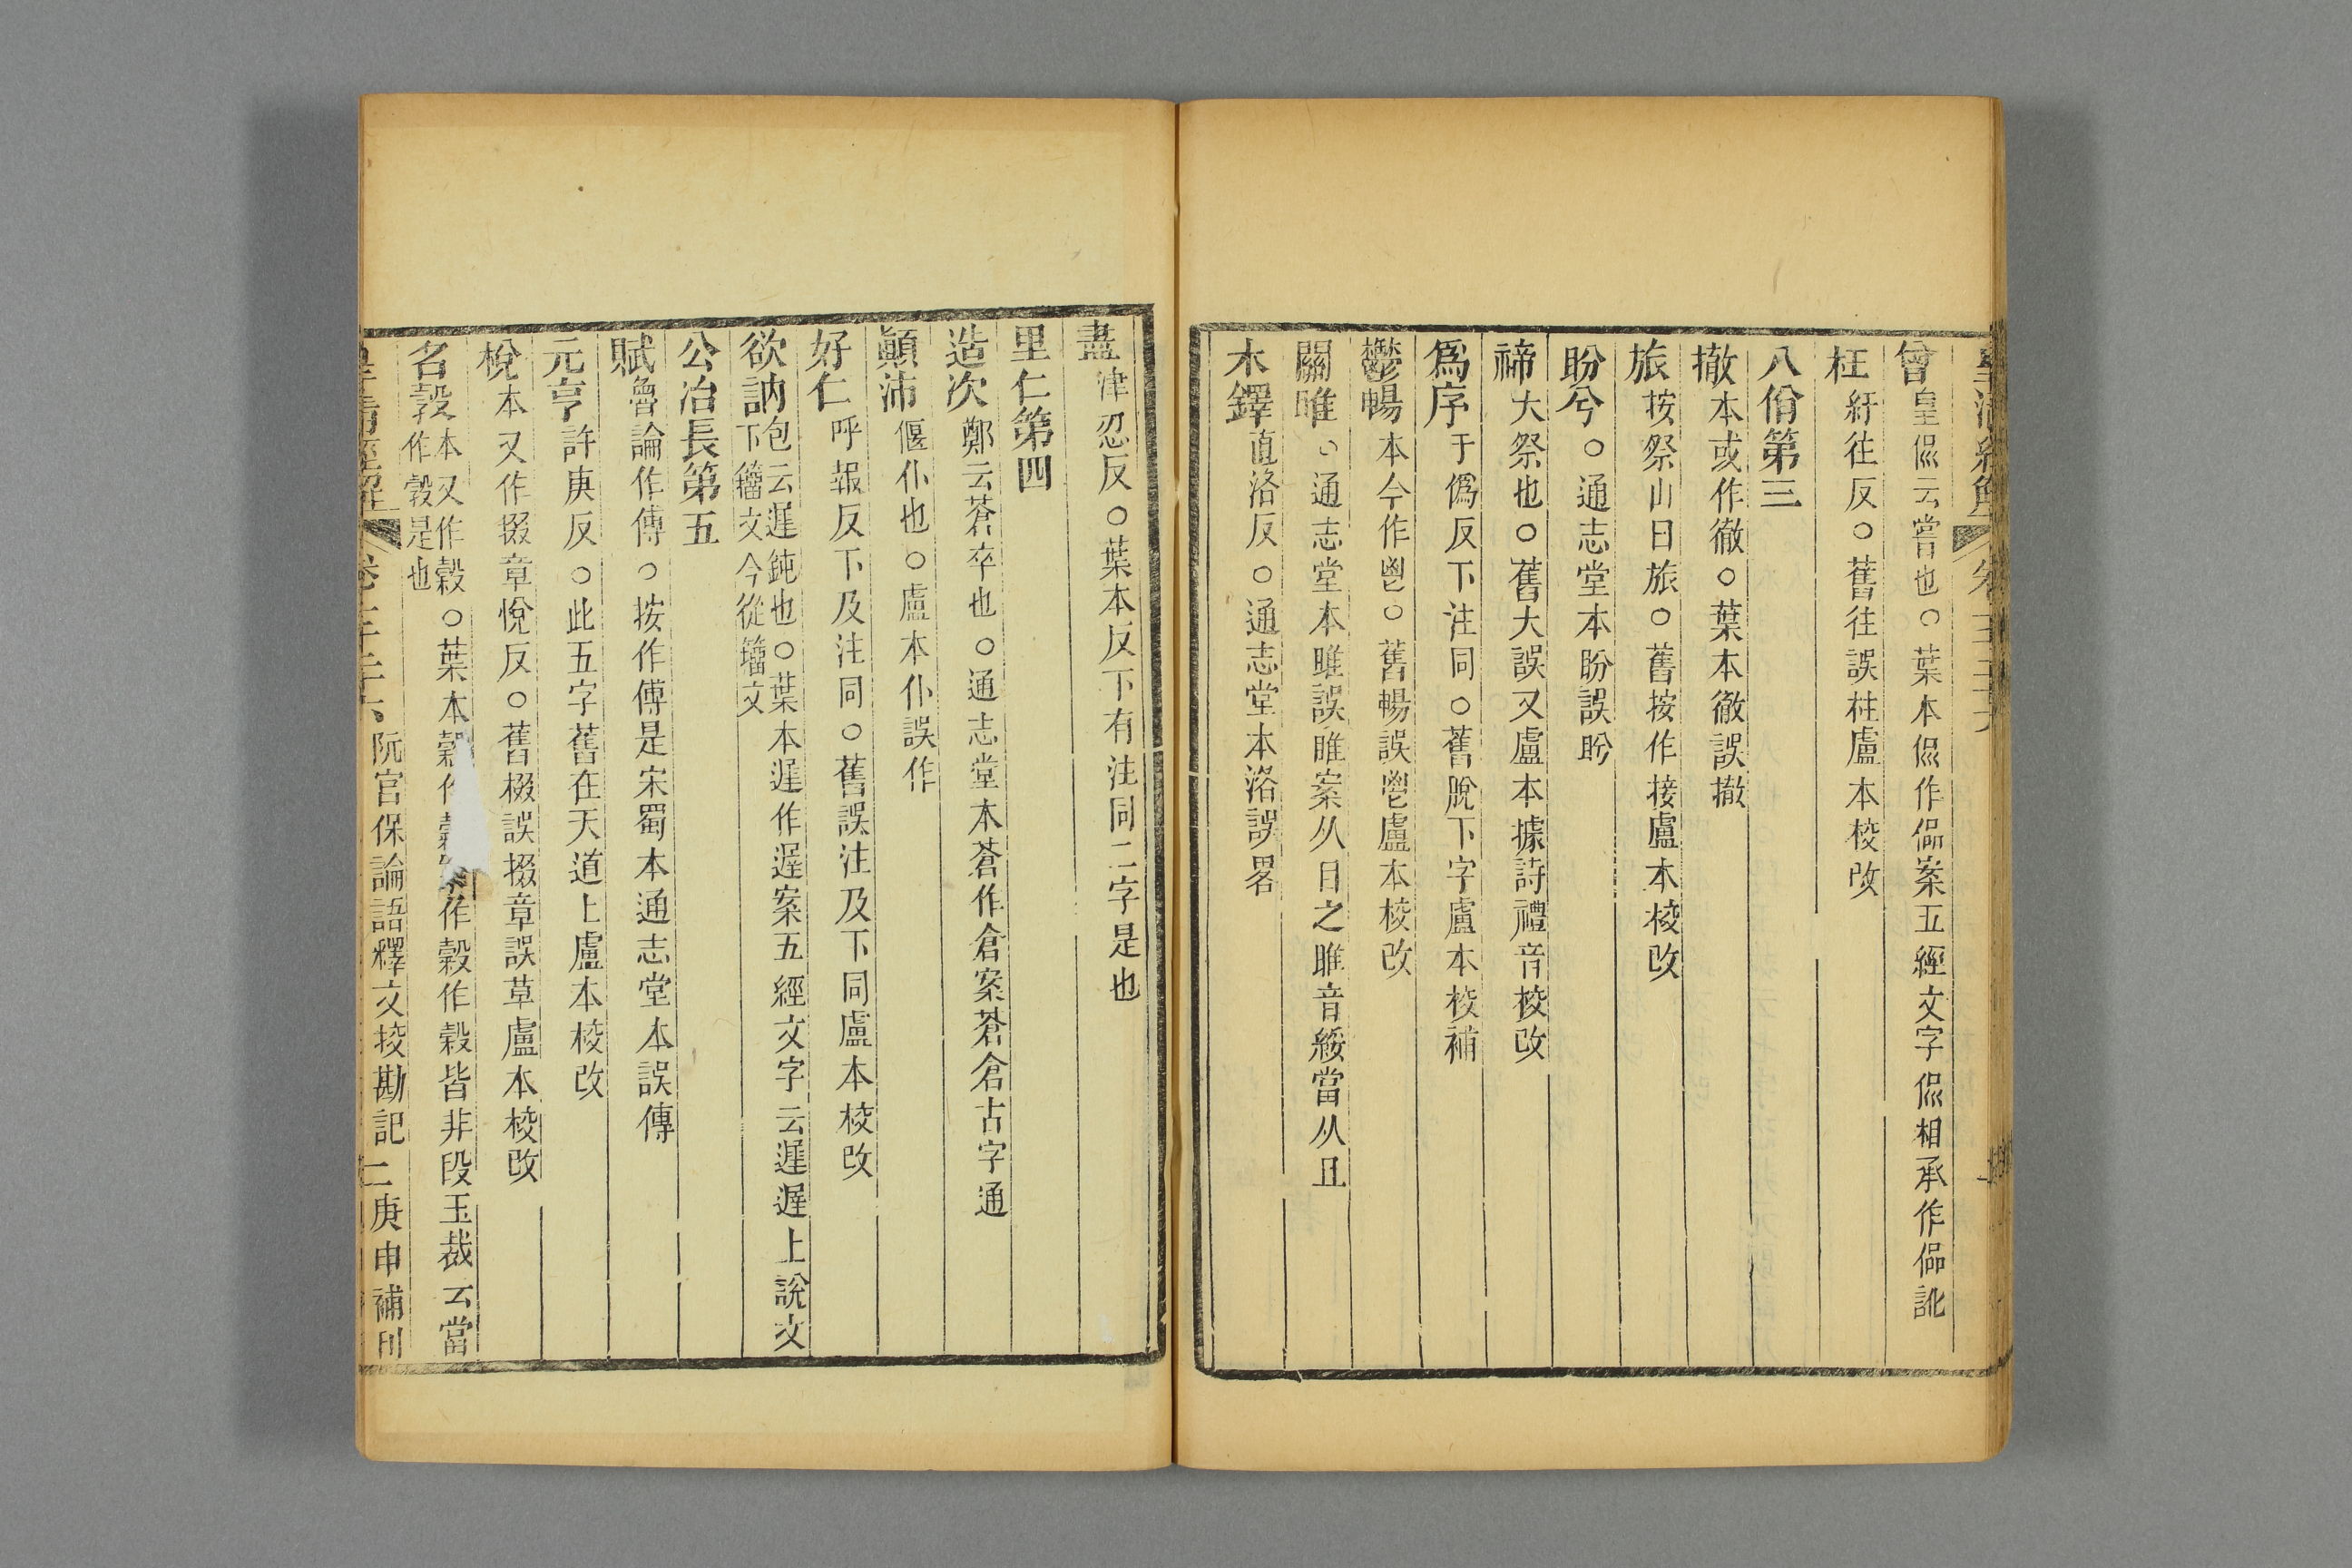 皇清經解 卷
曾皇侃云嘗也○葉本侃作偘案五經文字侃相承作偘訛
枉紆往反○舊往誤柱盧本校改
八佾第三
撤本或作徹○葉本徹誤撤
旅按祭山曰旅○舊按作接盧本校改
盼兮○通志堂本盼誤盻
禘大祭也○舊大誤又盧本據詩禮音挍改
爲序于僞反下注同○舊脫下字盧本校補
鬱暢本今作鬯○舊暢誤鬯盧本校改
關雎○通志堂本雎誤睢案从日之睢音綏當从且
木鐸直洛反○通志堂本洛誤畧
盡津忍反○葉本反下有注同二字是也
里仁第四
造次鄭云蒼卒也○通志堂本蒼作倉案蒼倉古字通
顚沛偃仆也○盧本仆誤作
好仁呼報反下及注同○舊誤注及下同盧本校改
欲訥包云遲鈍也○葉本遲作遟案五經文字云遲遟上說文
下籒文今從籒文
公冶長第五
賦魯論作傅○按作傅是宋蜀本通志堂本誤傳
元亨許庚反○此五字舊在天道上盧本校改
梲本又作掇章悅反○舊棳誤掇章誤草盧本校改
名穀本又作穀○葉本 作穀作穀皆非段玉裁云當
作穀是也
皇清經解 卷 阮宮保論語釋文挍勘記 二 庚申補刊